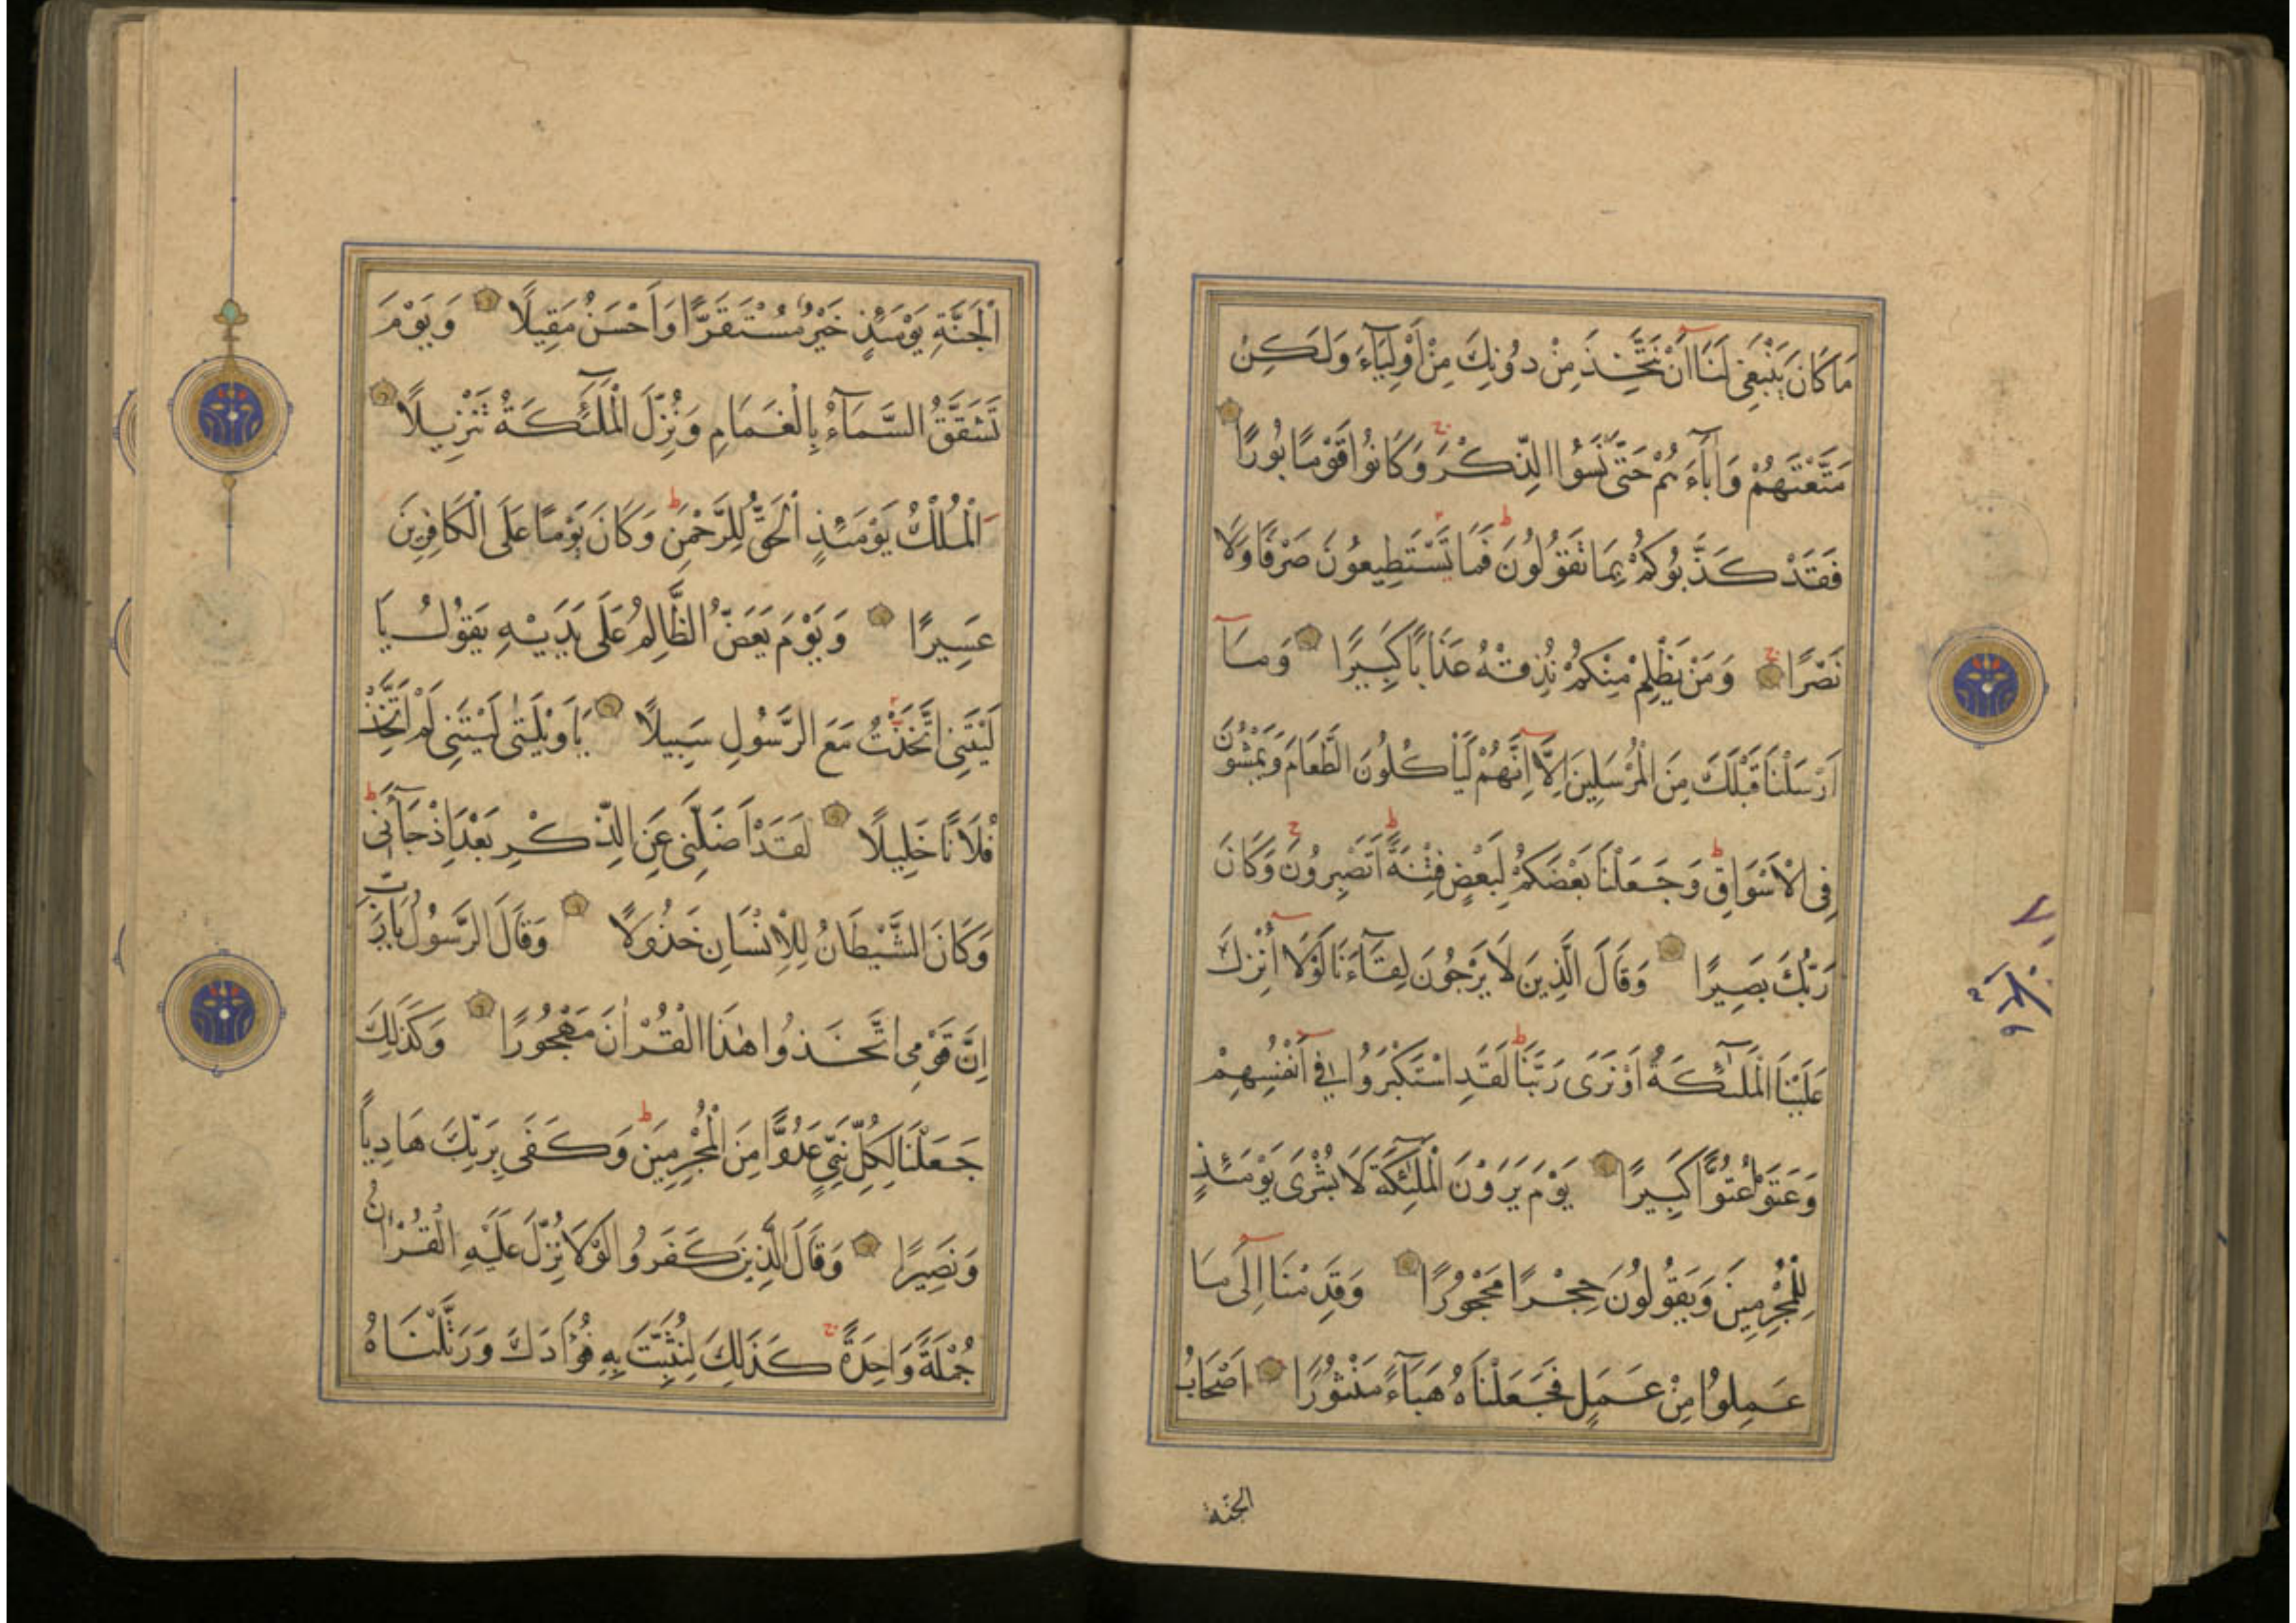 مَا كَانَ يَنْبَغِى لَنَا اَنْ نَتَّخِذَ مِنْ دُونِكَ مِنْ اَوْلِيَآءَ وَلَكِنْ
مَتَّعْتَهُمْ وَاٰبَآءَ هُمْ حَتّٰى نَسُوا الذِّكْرَ وَكَانُوا قَوْمًا بُورًا
فَقَدْ كَذَّبُوكُمْ بِمَا تَقُولُونَ فَمَا تَسْتَطِيعُونَ صَرْفًا وَلَا
نَصْرًا وَمَنْ يَظْلِمْ مِنْكُمْ نُذِقْهُ عَذَابًا كَبِيرًا وَمَآ
اَرْسَلْنَا قَبْلَكَ مِنَ الْمُرْسَلِينَ اِلَّآ اِنَّهُمْ لَيَأْكُلُونَ الطَّعَامَ وَيَمْشُونَ
فِى الْاَسْوَاقِ وَجَعَلْنَا بَعْضَكُمْ لِبَعْضٍ فِتْنَةً اَتَصْبِرُونَ وَكَانَ
رَبُّكَ بَصِيرًا وَقَالَ الَّذِينَ لَا يَرْجُونَ لِقَآءَنَا لَوْلَآ اُنْزِلَ
عَلَيْنَا الْمَلٰٓئِكَةُ اَوْ نَرَى رَبَّنَا لَقَدِ اسْتَكْبَرُوا فِىٓ اَنْفُسِهِمْ
وَعَتَوْا عُتُوًّا كَبِيرًا يَوْمَ يَرَوْنَ الْمَلٰٓئِكَةَ لَا بُشْرَى يَوْمَئِذٍ
لِلْمُجْرِمِينَ وَيَقُولُونَ حِجْرًا مَحْجُورًا وَقَدِمْنَآ اِلَى مَا
عَمِلُوا مِنْ عَمَلٍ فَجَعَلْنَاهُ هَبَآءً مَنْثُورًا اَصْحَابُ
الجنّة
اَلْجَنَّةِ يَوْمَئِذٍ خَيْرٌ مُسْتَقَرًّا وَاَحْسَنُ مَقِيلًا وَيَوْمَ
تَشَقَّقُ السَّمَآءُ بِالْغَمَامِ وَنُزِّلَ الْمَلٰٓئِكَةُ تَنْزِيلًا
اَلْمُلْكُ يَوْمَئِذٍ الْحَقُّ لِلرَّحْمٰنِ وَكَانَ يَوْمًا عَلَى الْكَافِرِينَ
عَسِيرًا وَيَوْمَ يَعَضُّ الظَّالِمُ عَلَى يَدَيْهِ يَقُولُ يَا
لَيْتَنِى اتَّخَذْتُ مَعَ الرَّسُولِ سَبِيلًا يَا وَيْلَتٰى لَيْتَنِى لَمْ اَتَّخِذْ
فُلَانًا خَلِيلًا لَقَدْ اَضَلَّنِى عَنِ الذِّكْرِ بَعْدَ اِذْ جَآءَنِى
وَكَانَ الشَّيْطَانُ لِلْاِنْسَانِ خَذُولًا وَقَالَ الرَّسُولُ يَا رَبِّ
اِنَّ قَوْمِى اتَّخَذُوا هٰذَا الْقُرْاٰنَ مَهْجُورًا وَكَذَلِكَ
جَعَلْنَا لِكُلِّ نَبِىٍّ عَدُوًّا مِنَ الْمُجْرِمِينَ وَكَفَى بِرَبِّكَ هَادِيًا
وَنَصِيرًا وَقَالَ الَّذِينَ كَفَرُوا لَوْلَا نُزِّلَ عَلَيْهِ الْقُرْاٰنُ
جُمْلَةً وَاحِدَةً كَذَلِكَ لِنُثَبِّتَ بِهِ فُؤَادَكَ وَرَتَّلْنَاهُ